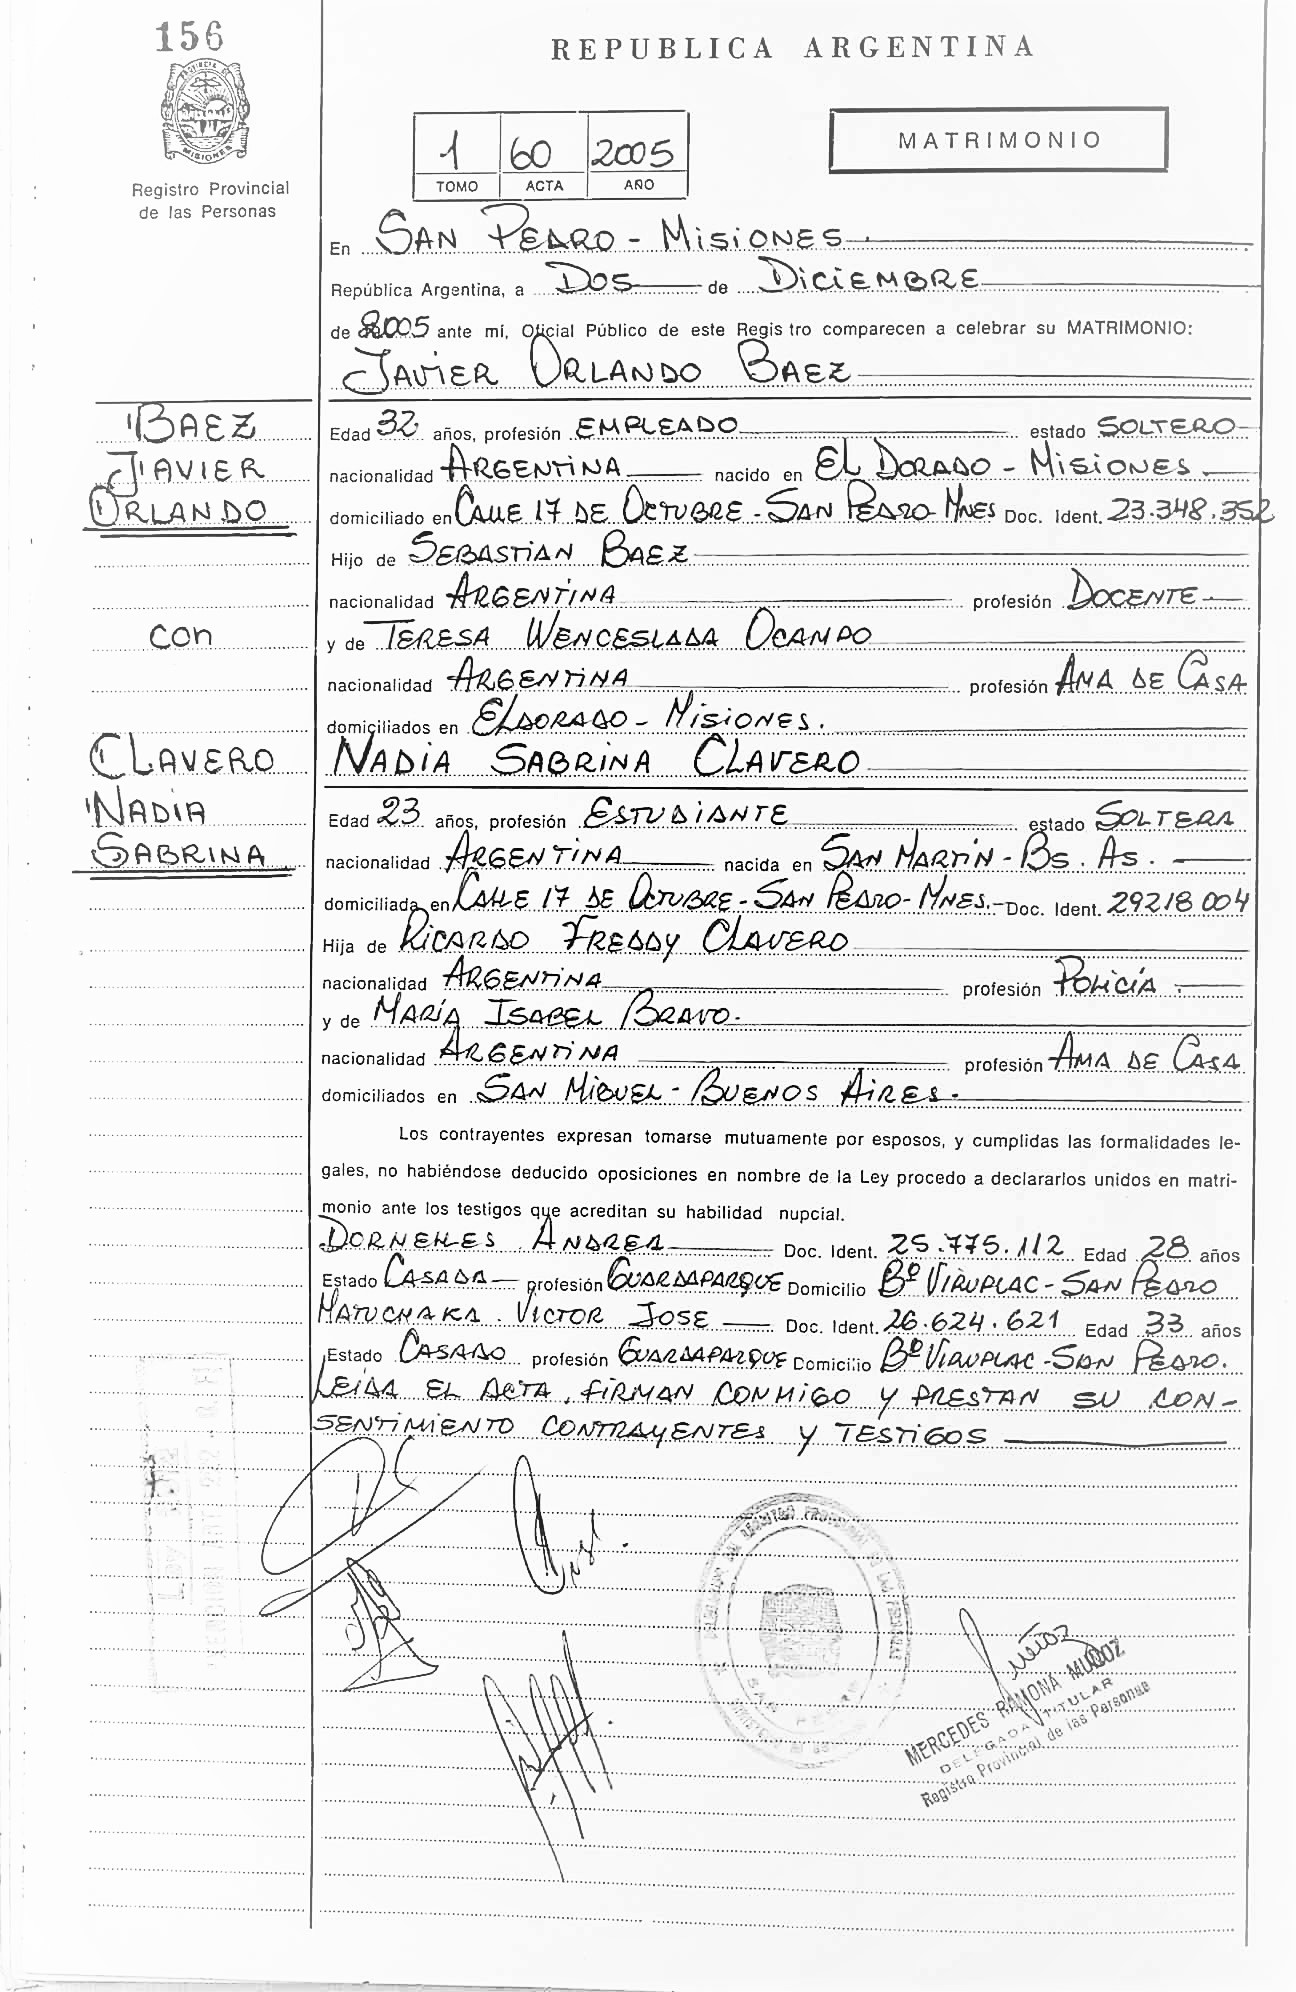 156
REPUBLICA ARGENTINA
PROVINCIA DE
MISIONES
Registro Provincial
de las Personas
1 60 2005
TOMO ACTA AÑO
MATRIMONIO
En SAN PEDRO - MISIONES
República Argentina, a DOS de DICIEMBRE
de 2005 ante mí, Oficial Público de este Registro comparecen a celebrar su MATRIMONIO:
JAVIER ORLANDO BAEZ
BAEZ
JAVIER
ORLANDO
con
CLAVERO
NADIA
SABRINA
Edad 32 años, profesión EMPLEADO estado SOLTERO
nacionalidad ARGENTINA nacido en EL DORADO - MISIONES
domiciliado en CALLE 17 DE OCTUBRE - SAN PEDRO - MNES Doc. Ident. 23.348.352
Hijo de SEBASTIAN BAEZ
nacionalidad ARGENTINA profesión DOCENTE
y de TERESA WENCESLADA OCAMPO
nacionalidad ARGENTINA profesión AMA DE CASA
domiciliados en ELDORADO - MISIONES.
NADIA SABRINA CLAVERO
Edad 23 años, profesión ESTUDIANTE estado SOLTERA
nacionalidad ARGENTINA nacida en SAN MARTIN - Bs. As.
domiciliada en CALLE 17 DE OCTUBRE - SAN PEDRO - MNES. Doc. Ident. 29218004
Hija de RICARDO FREDDY CLAVERO
nacionalidad ARGENTINA profesión POLICÍA
y de MARÍA ISABEL BRAVO.
nacionalidad ARGENTINA profesión AMA DE CASA
domiciliados en SAN MIGUEL - BUENOS AIRES.
Los contrayentes expresan tomarse mutuamente por esposos, y cumplidas las formalidades le-
gales, no habiéndose deducido oposiciones en nombre de la Ley procedo a declararlos unidos en matri-
monio ante los testigos que acreditan su habilidad nupcial.
DORNELLES ANDREA Doc. Ident. 25.775.112 Edad 28 años
Estado CASADA profesión GUARDAPARQUE Domicilio Bº VIRUPLAC - SAN PEDRO
MATUCHAKA. VICTOR JOSE Doc. Ident. 26.624.621 Edad 33 años
Estado CASADO profesión GUARDAPARQUE Domicilio Bº VIRUPLAC - SAN PEDRO.
LEIDA EL ACTA, FIRMAN CONMIGO Y PRESTAN SU CON-
SENTIMIENTO CONTRAYENTES Y TESTIGOS
SAN PEDRO
Muñoz
MERCEDES RAMONA MUÑOZ
DELEGADA TITULAR
Registro Provincial de las Personas